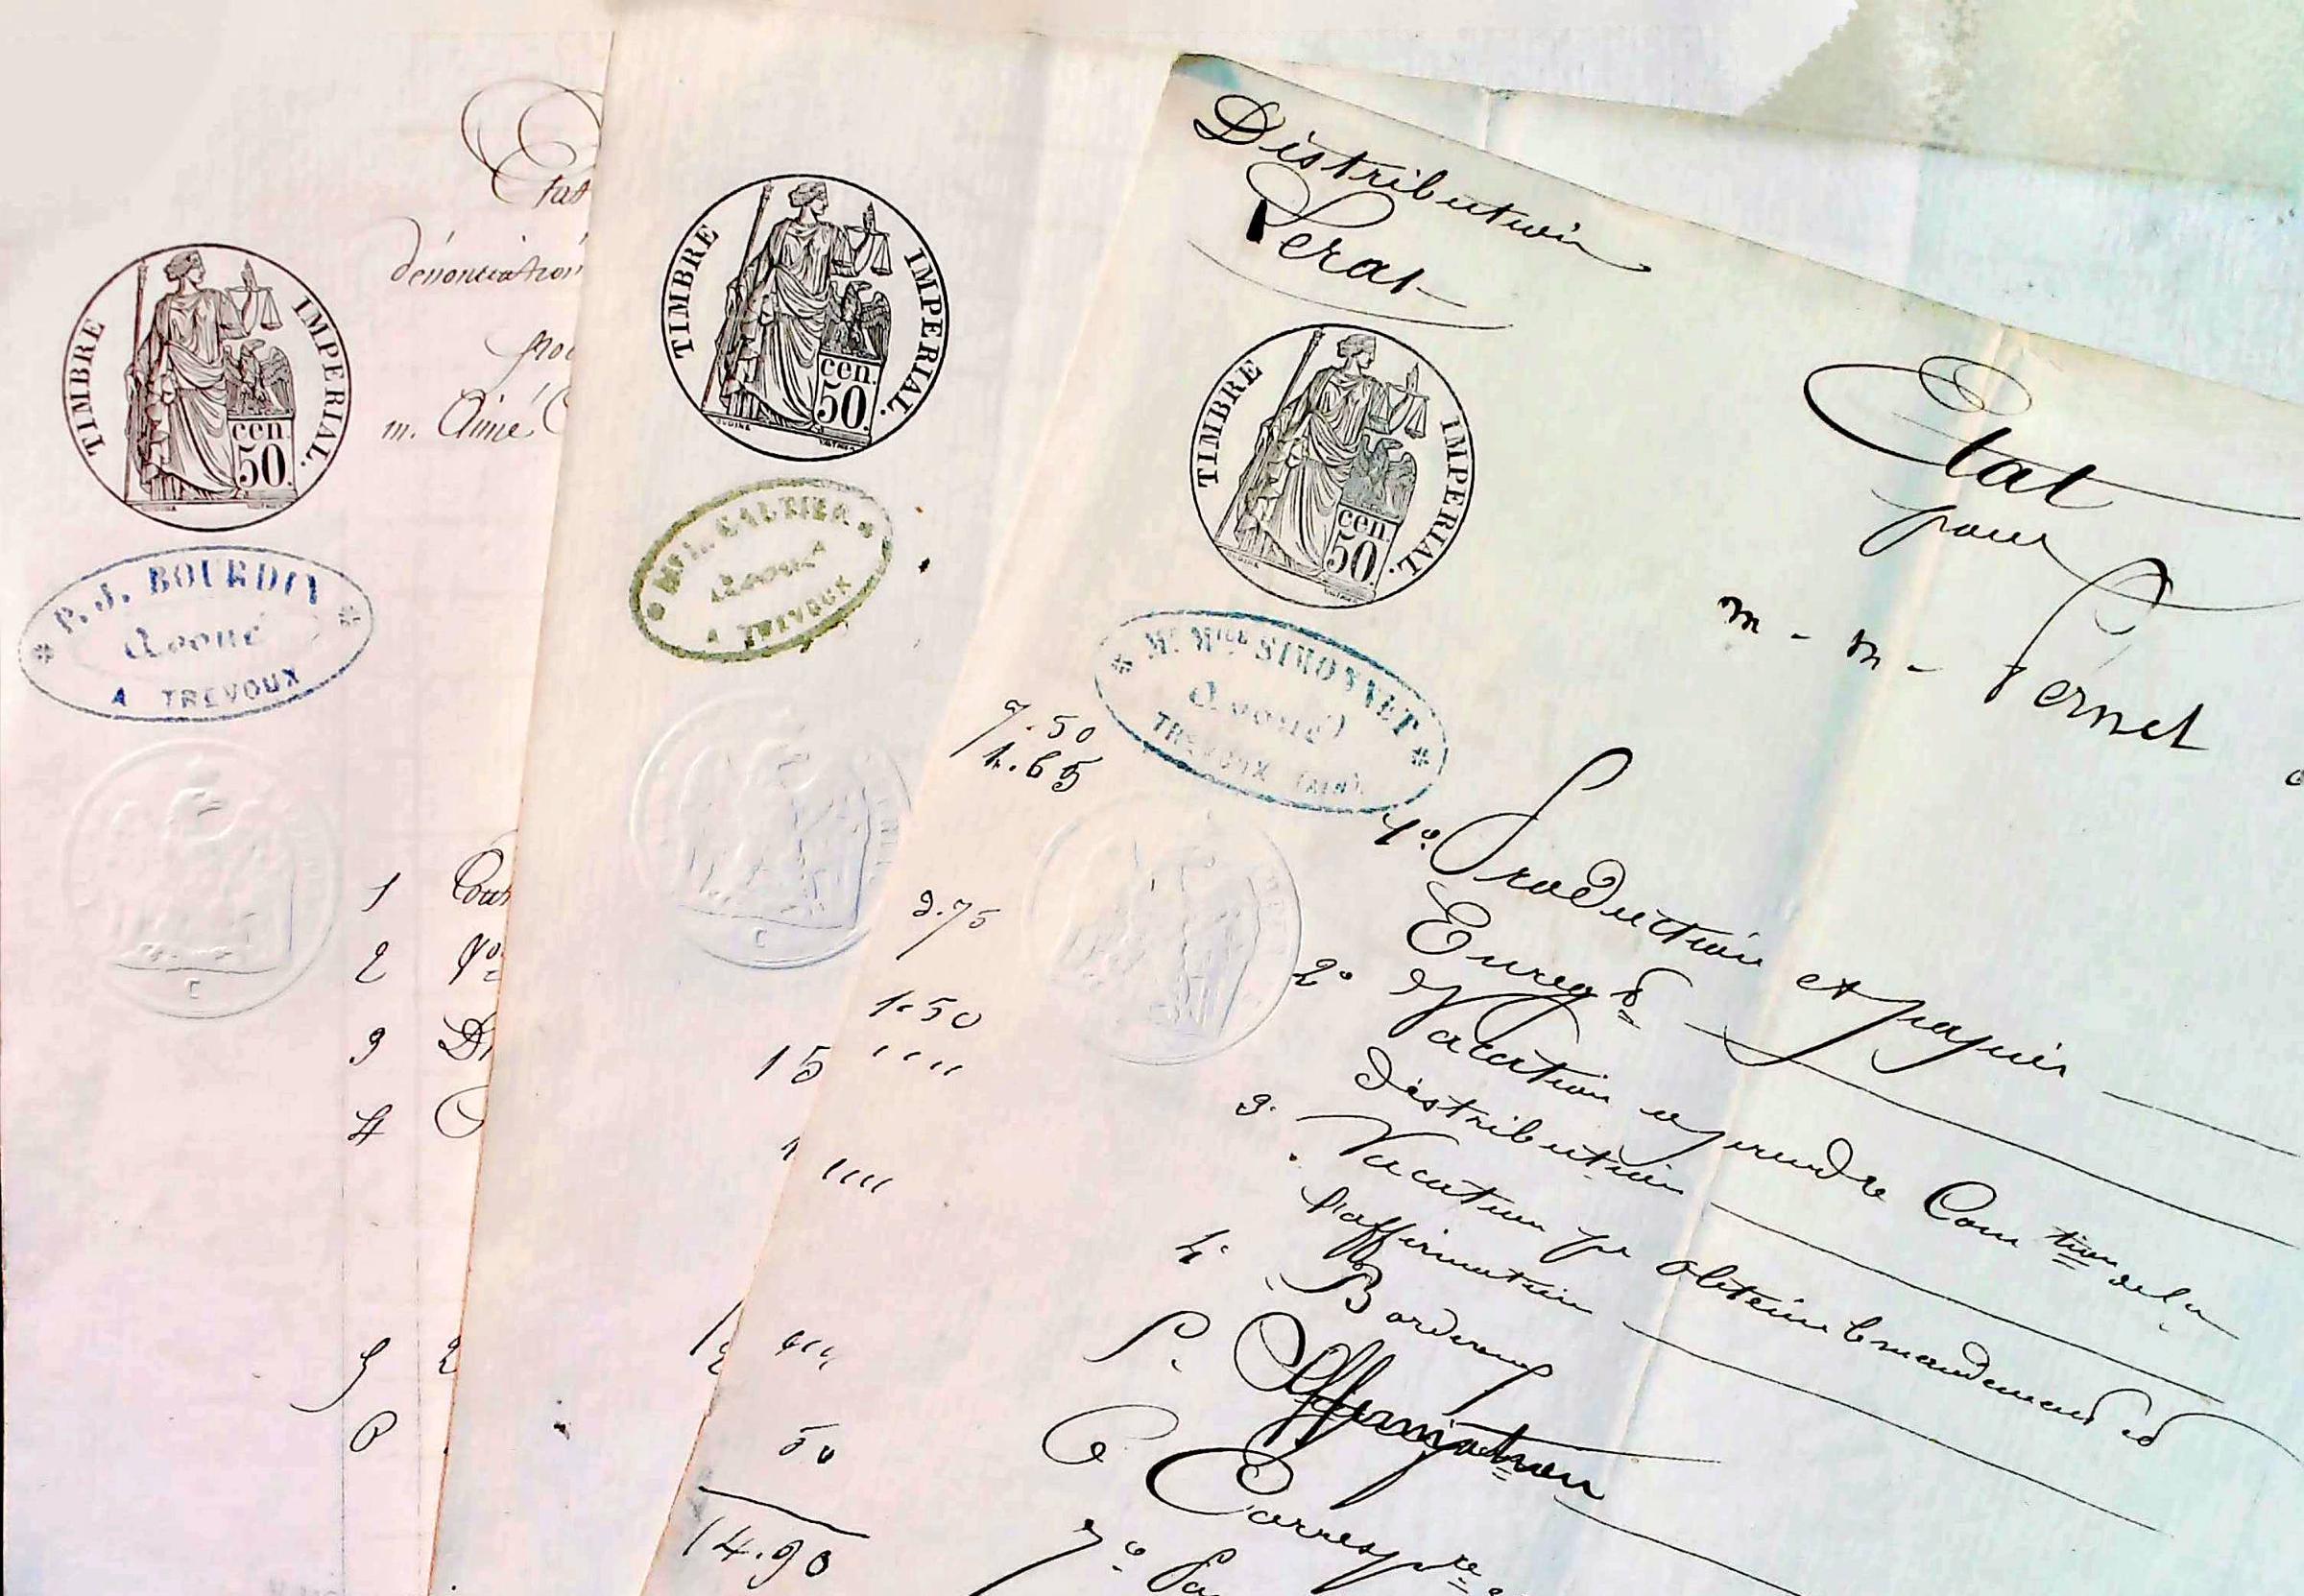 Etat
dénonciation
pou
m. Aimé C
TIMBRE IMPERIAL.
cen.
50.
P. J. BOURDIN
Avoué
A TREVOUX
C
1 Cout
2
3 D
4
5
6
TIMBRE IMPERIAL.
cen.
50.
GAUTIER
Avoué
A TREVOUX
C
15
Distribution
Perat
TIMBRE IMPERIAL.
cen.
50.
Mce SIMONNET
Avoué
TREVOUX (AIN).
Etat
pour
m - m - Pernet
7.50
1.65
1º Production et
Enregt
2.75
2º Vacation a prendre Comtion de la
distribution
1.50
3. Vacation pr obtenir le mandement et
l'affirmation
4. Bordereau
5. Affirmation
50
6 Correspce
14.90
7º